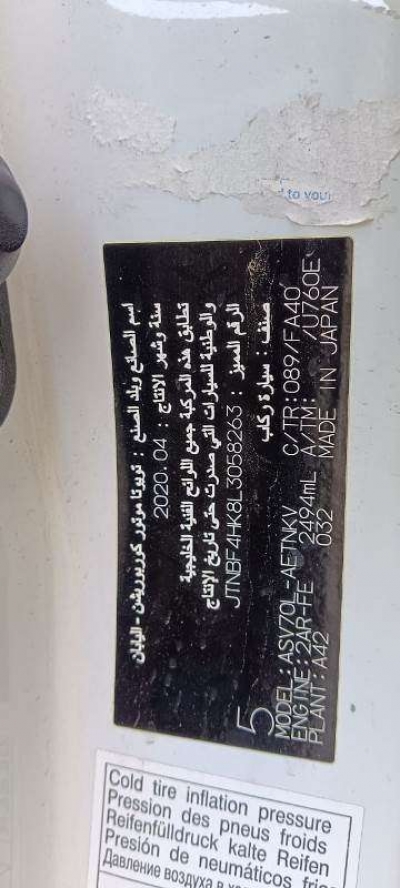 to your
اسم الصانع وبلد الصنع : تويوتا موتور كوربوريشن - اليابان
سنة وشهر الإنتاج : 2020.04
تطابق هذه المركبة جميع اللوائح الفنية الخليجية
والوطنية للسيارات التي صدرت حتى تاريخ الإنتاج
الرقم المميز : JTNBF4HK8L3058263
صنف : سيارة ركاب
5
MODEL : ASV70L-AETNKV C/TR: 089/FA40
ENGINE: 2AR-FE 2494mL A/TM: /U760E
PLANT: A42 032 MADE IN JAPAN
Cold tire inflation pressure
Pression des pneus froids
Reifenfülldruck kalte Reifen
Presión de neumáticos
Давление воздуха в